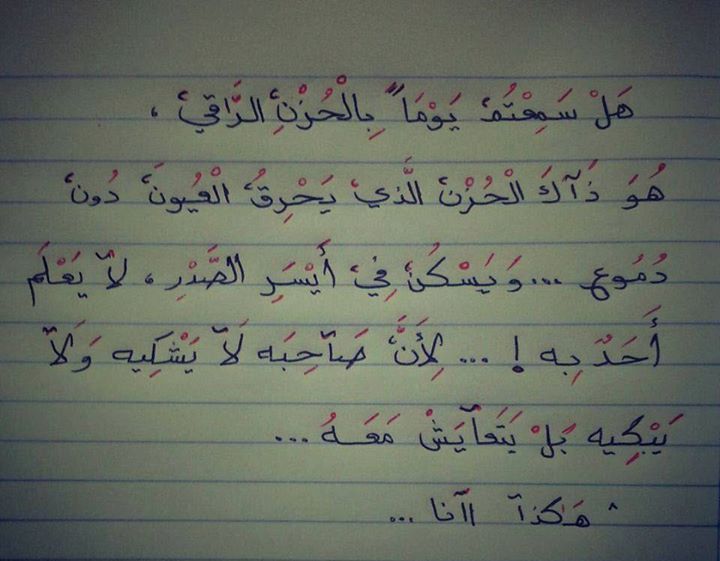 هَلْ سَمِعْتُمْ يَوْمَاً بِالْحُزْنِ الرَّاقِي ،
هُوَ ذَآكَ الْحُزْنَ الَّذِي يَحْرِقُ الْعُيُونَ دُونَ
دُمُوعٍ ... وَ يَسْكُنُ فِيْ أَيْسَرِ الصَّدْرِ ، لآ يَعْلَم
أَحَدٌ بِه ! ... لِأَنَّ صَآحِبَه لَآ يَشْكِيه وَلَآ
يَبْكِيه بَلْ يَتَعآيَشْ مَعَهُ ...
^ هَكَذآ اآنا ...